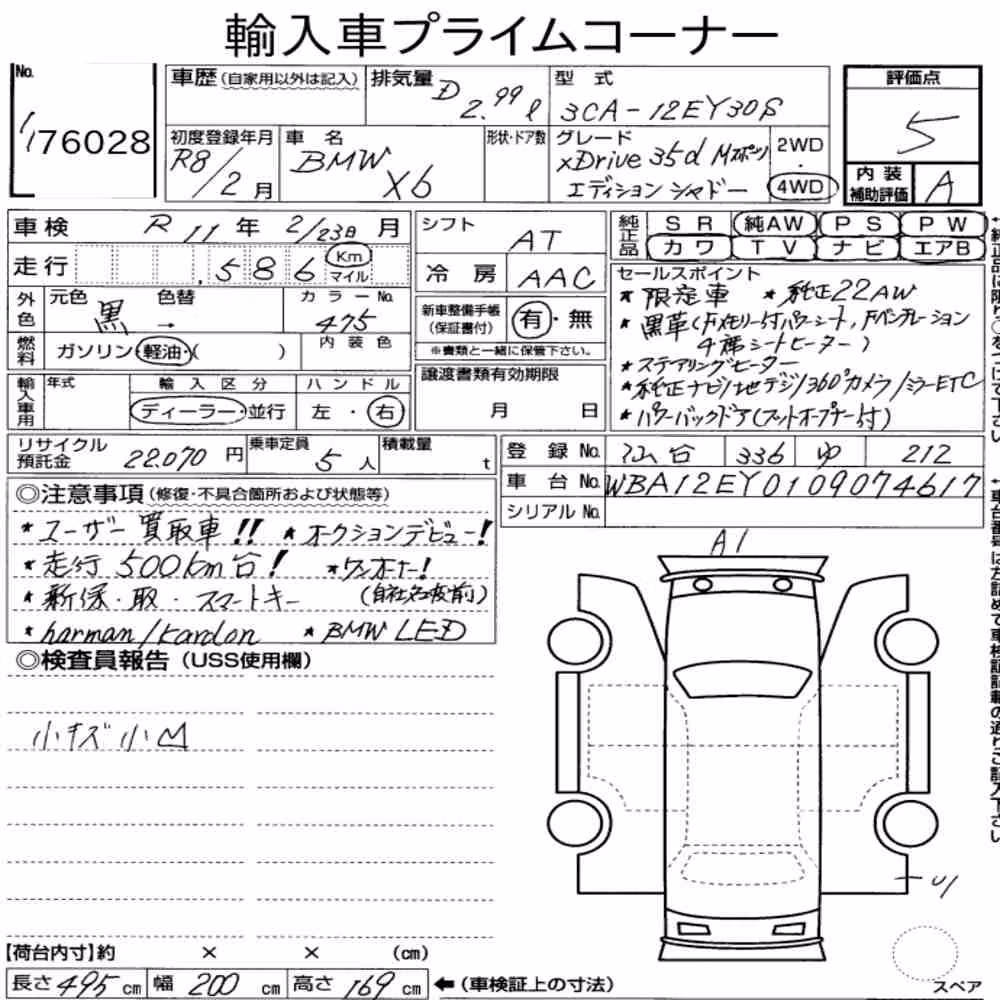 輸入車プライムコーナー
No.
1/76028
車歴(自家用以外は記入)
排気量
D 2.99 ℓ
型式
3CA-12EY30S
評価点
5
内装補助評価
A
初度登録年月
R8/2月
車名
BMW X6
形状・ドア数
グレード
xDrive 35d Mスポーツ
エディション シャドー
2WD
4WD
車検
R 11 年 2/23日 月
走行
,586
Km
マイル
シフト
AT
冷房
AAC
純正品
SR 純AW PS PW
カワ TV ナビ エアB
外色
元色 黒 →
色替
カラーNo.
475
内装色
燃料
ガソリン・軽油・( )
新車整備手帳
(保証書付)
有・無
※書類と一緒に保管下さい。
セールスポイント
* 限定車 * 純正22AW
* 黒革(Fメモリー付パワーシート,Fベンチレーション
4席シートヒーター)
* ステアリングヒーター
* 純正ナビ/地デジ/360°カメラ/ミラーETC
* パワーバックドア(フットオープナー付)
輸入車用
年式
輸入区分
ディーラー・並行
ハンドル
左・右
譲渡書類有効期限
月 日
リサイクル預託金
22,070円
乗車定員
5人
積載量
t
登録No.
仙台 336 ゆ 212
車台No.
WBA12EY0109074617
シリアルNo.
◎注意事項(修復・不具合箇所および状態等)
* ユーザー買取車!! * オークションデビュー!
* 走行500km台! * ワンオーナー!
* 新保・取・スマートキー (自社名変前)
* harman/kardon * BMW LED
◎検査員報告(USS使用欄)
小キズ小凹
A1
U1
【荷台内寸】約 × × (cm)
長さ495cm 幅200cm 高さ169cm
←(車検証上の寸法)
スペア